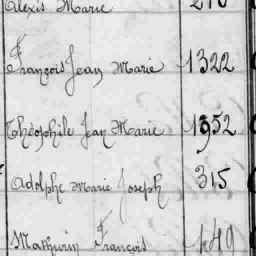 Alexis Marie 210
François Jean Marie 1322
Théophile Jean Marie 1952
Adolphe Marie Joseph 315
Mathurin François 449